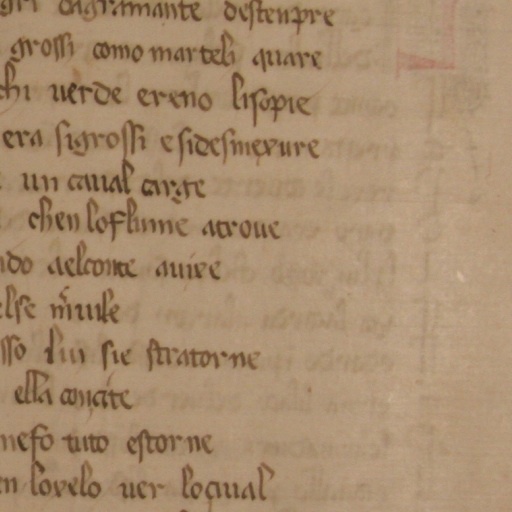 agramante destenpre
grossi como marteli quare
chi uerde ereno lisopie
era sigrossi e sidesmexure
un caual carge
chen loflume atroue
ndo aelconte auire
else
sso lui sie stratorne
ella
nefo tuto estorne
n louelo uer loqual